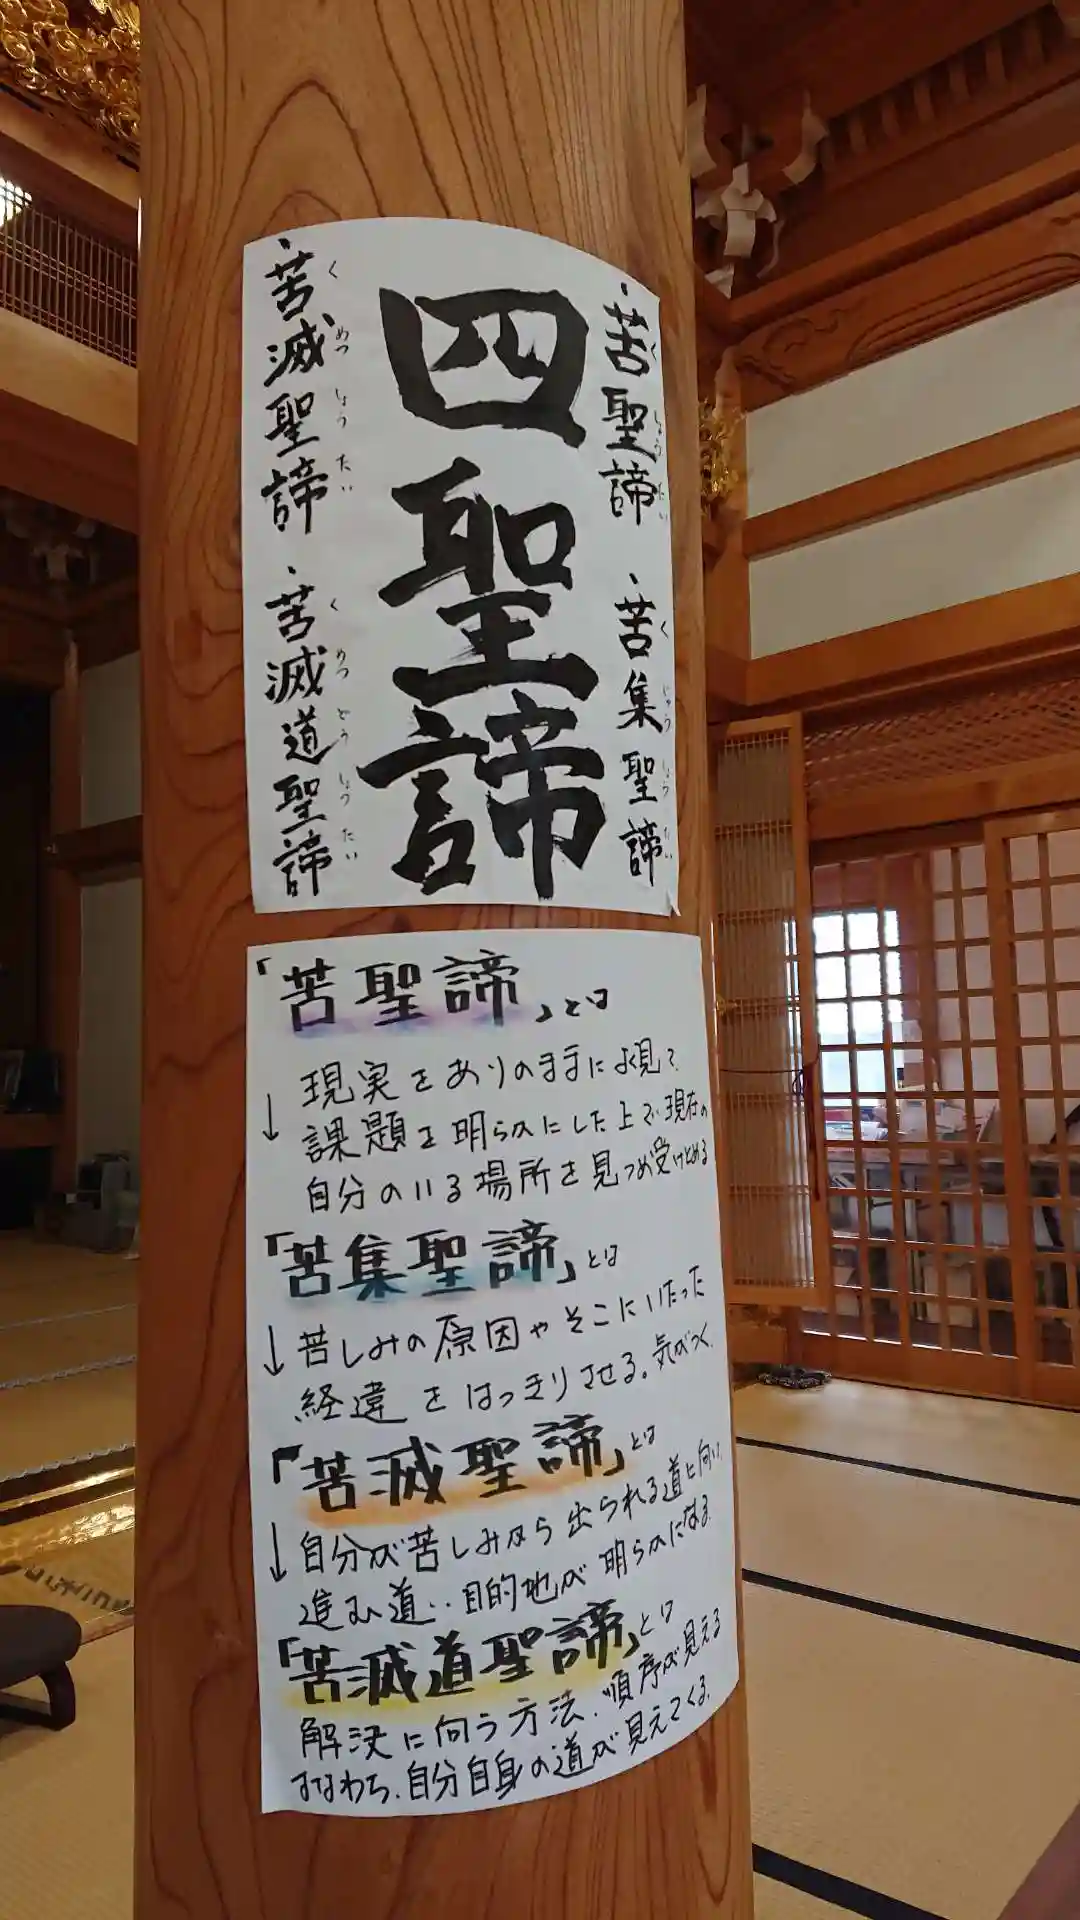 ・苦聖諦
くしょうたい
・苦集聖諦
くじゅうしょうたい
四聖諦
・苦滅聖諦
くめつしょうたい
・苦滅道聖諦
くめつどうしょうたい
「苦聖諦」とは
↓現実をありのままによく見て、
課題を明らかにした上で現在の
自分のいる場所を見つめ受けとめる
「苦集聖諦」とは
↓苦しみの原因やそこにいたった
経違をはっきりさせる。気がつく。
「苦滅聖諦」とは
↓自分が苦しみから出られる道に向い、
進む道‥目的地が明らかになる。
「苦滅道聖諦」とは
解決に向う方法、順序が見える
すなわち、自分自身の道が見えてくる。